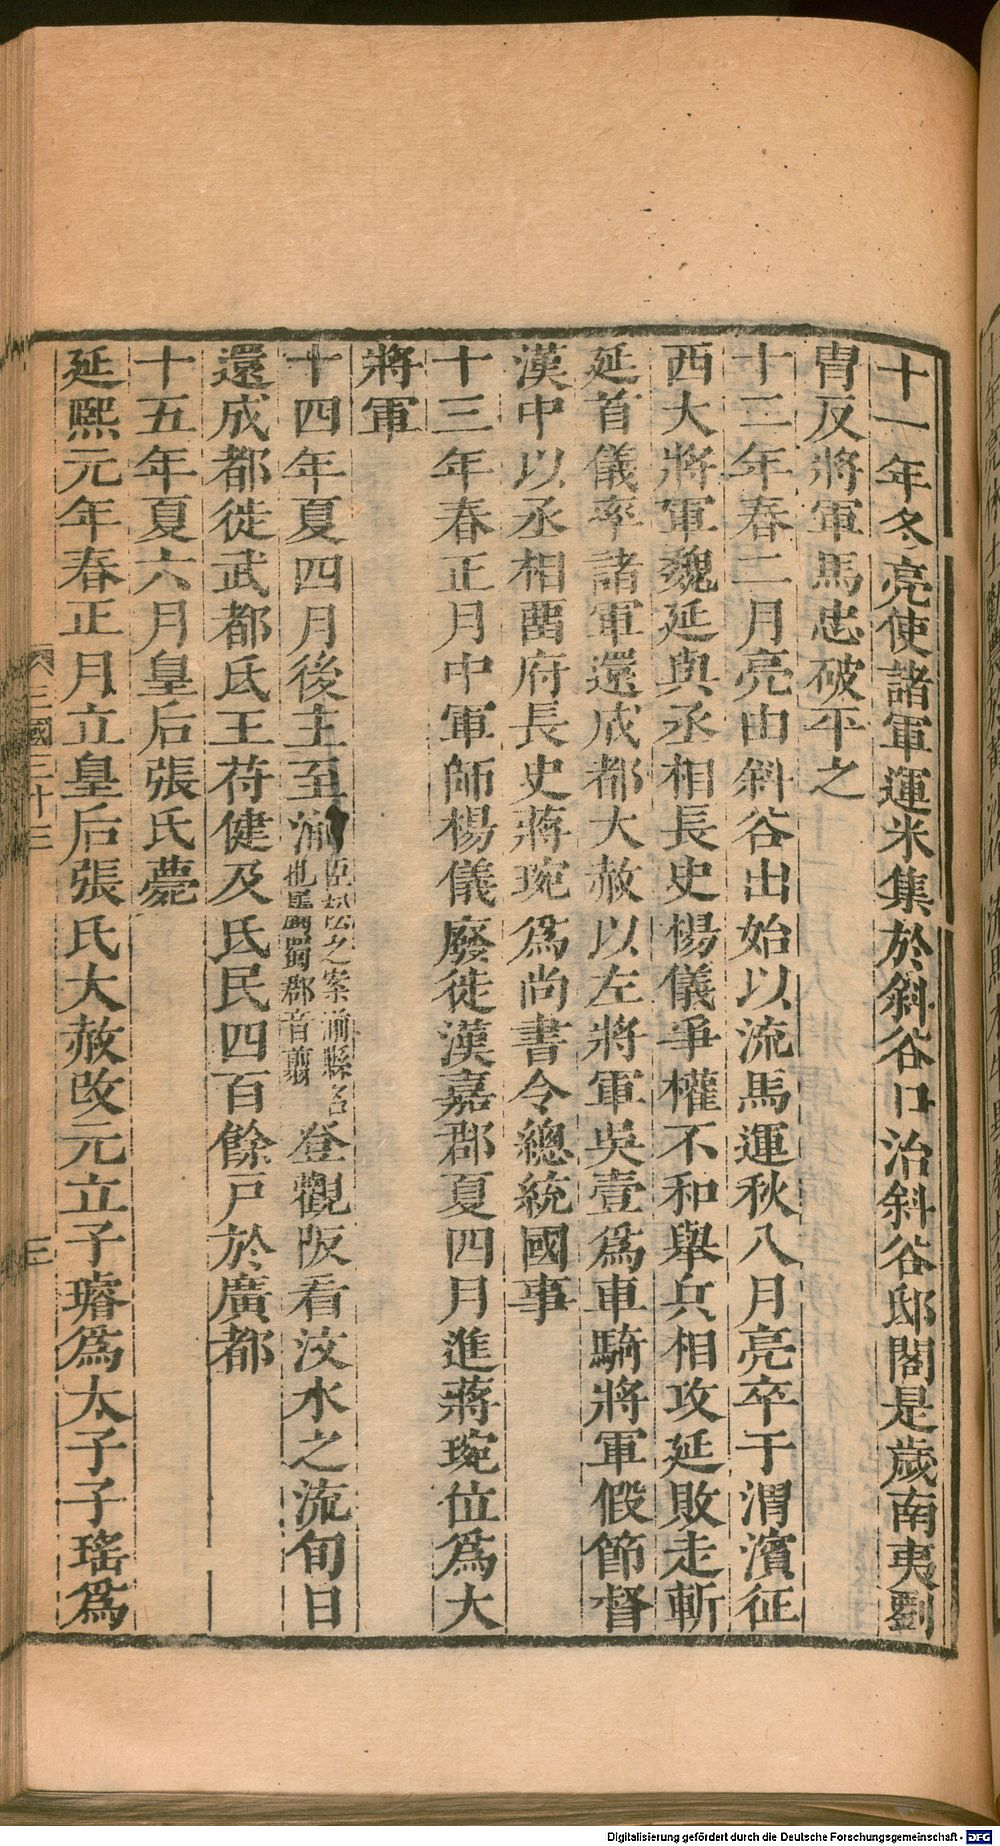 十一年冬亮使諸軍運米集於斜谷口治斜谷邸閣是歲南夷劉
胄反將軍馬忠破平之
十二年春二月亮由斜谷出始以流馬運秋八月亮卒于渭濱征
西大將軍魏延與丞相長史楊儀爭權不和舉兵相攻延敗走斬
延首儀率諸軍還成都大赦以左將軍吳壹爲車騎將軍假節督
漢中以丞相畱府長史蔣琬爲尚書令總統國事
十三年春正月中軍師楊儀廢徙漢嘉郡夏四月進蔣琬位爲大
將軍
十四年夏四月後主至湔臣松之案湔縣名也屬蜀郡音翦登觀阪看汶水之流旬日
還成都徙武都氐王苻健及氐民四百餘戸於廣都
十五年夏六月皇后張氏薨
延熙元年春正月立皇后張氏大赦改元立子璿爲太子子瑤爲
三國三十三
三
Digitalisierung gefördert durch die Deutsche Forschungsgemeinschaft - DFG